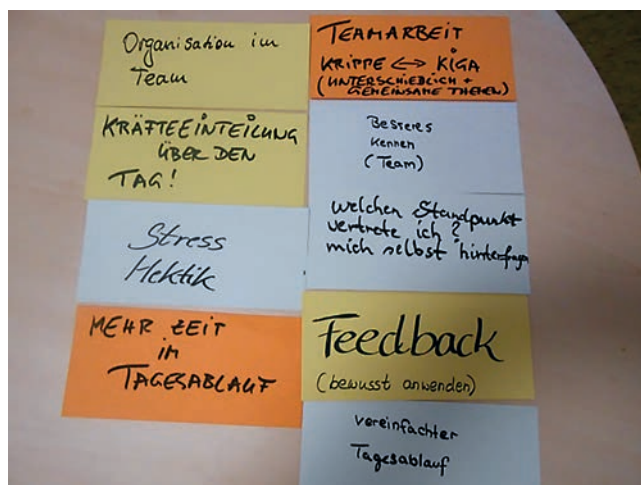 Organisation im
Team
KRÄFTEEINTEILUNG
ÜBER DEN
TAG!
Stress
Hektik
MEHR ZEIT
IM
TAGESABLAUF
TEAMARBEIT
KRIPPE <-> KIGA
(UNTERSCHIEDLICH +
GEMEINSAME THEMEN)
Besseres
Kennen
(Team)
welchen Standpunkt
vertrete ich?
mich selbst "hinterfragen
Feedback
(bewusst anwenden)
vereinfachter
Tagesablauf